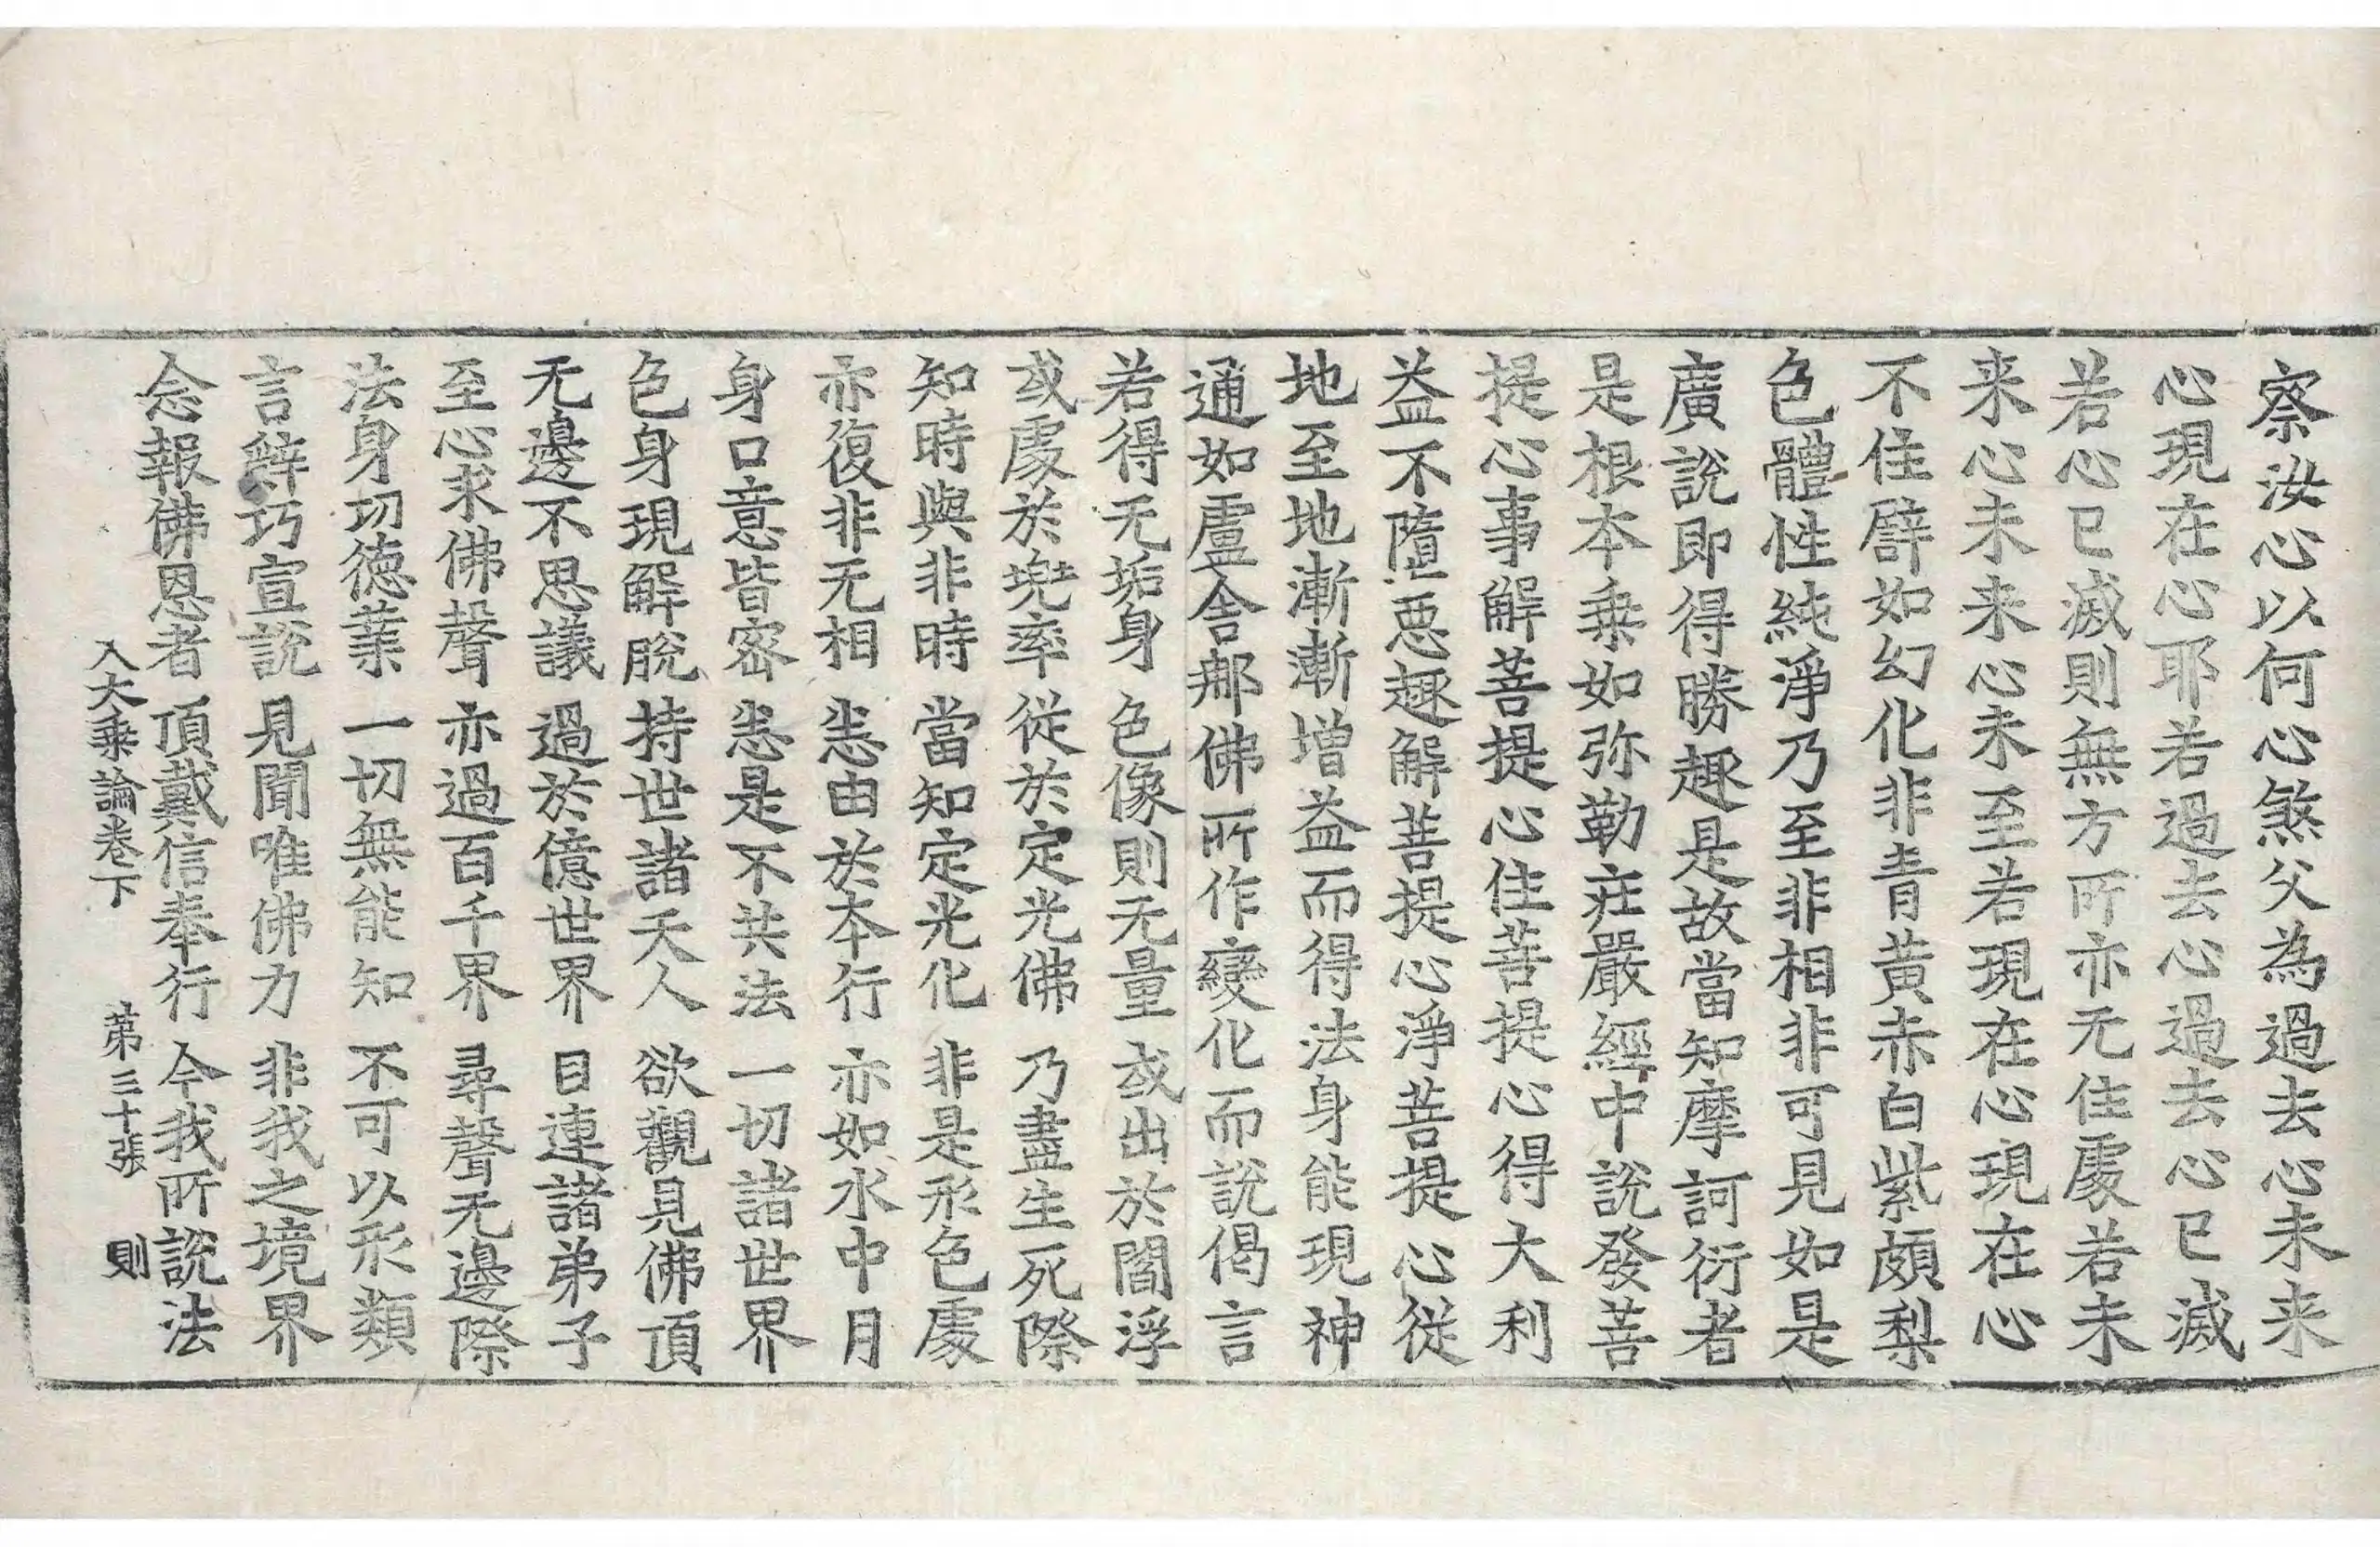 察汝心以何心煞父為過去心未来
心現在心耶若過去心過去心已滅
若心已滅則無方所亦无住處若未
来心未来心未至若現在心現在心
不住譬如幻化非青黄赤白紫頗梨
色體性純淨乃至非相非可見如是
廣說即得勝趣是故當知摩訶衍者
是根本乗如弥勒疰嚴經中說發菩
提心事解菩提心住菩提心得大利
益不墮惡趣解菩提心淨菩提心從
地至地漸漸增益而得法身能現神
通如盧舍那佛所作變化而說偈言
若得无垢身 色像則无量 或出於閻浮
或處於兜率 從於定光佛 乃盡生死際
知時與非時 當知定光化 非是形色處
亦復非无相 恙由於本行 亦如水中月
身口意皆密 恙是不共法 一切諸世界
色身現解脫 持世諸天人 欲觀見佛頂
无邊不思議 過於億世界 目連諸弟子
至心求佛聲 亦過百千界 尋聲无邊際
法身切德業 一切無能知 不可以形類
言辭巧宣說 見聞唯佛力 非我之境界
念報佛恩者 頂戴信奉行 今我所說法
入大乗論卷下 苐三十張 則